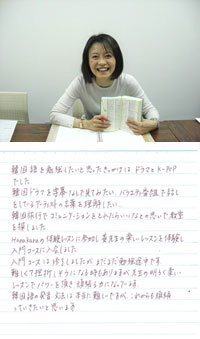 韓国語を勉強したいと思ったきっかけは ドラマとK-POP
でした
韓国ドラマを字幕なしで見てみたい、バラエティ番組で話を
しているアーティストの言葉を理解したい、
韓国旅行でコミュニケーションをとれたらいいなとの思いで教室
を探しました
Hanakoraの体験レッスンに参加し 先生の楽しいレッスンを体験し
入門コースに入会しました
入門コースは終了しましたが まだまだ勉強途中です
難しくて挫折しそうになる時もありますが 先生の明るく楽しい
レッスンでパワーを頂き 頑張る力になっています
韓国語の発音、文法は本当に難しいですが、これからも頑張
っていきたいと思います